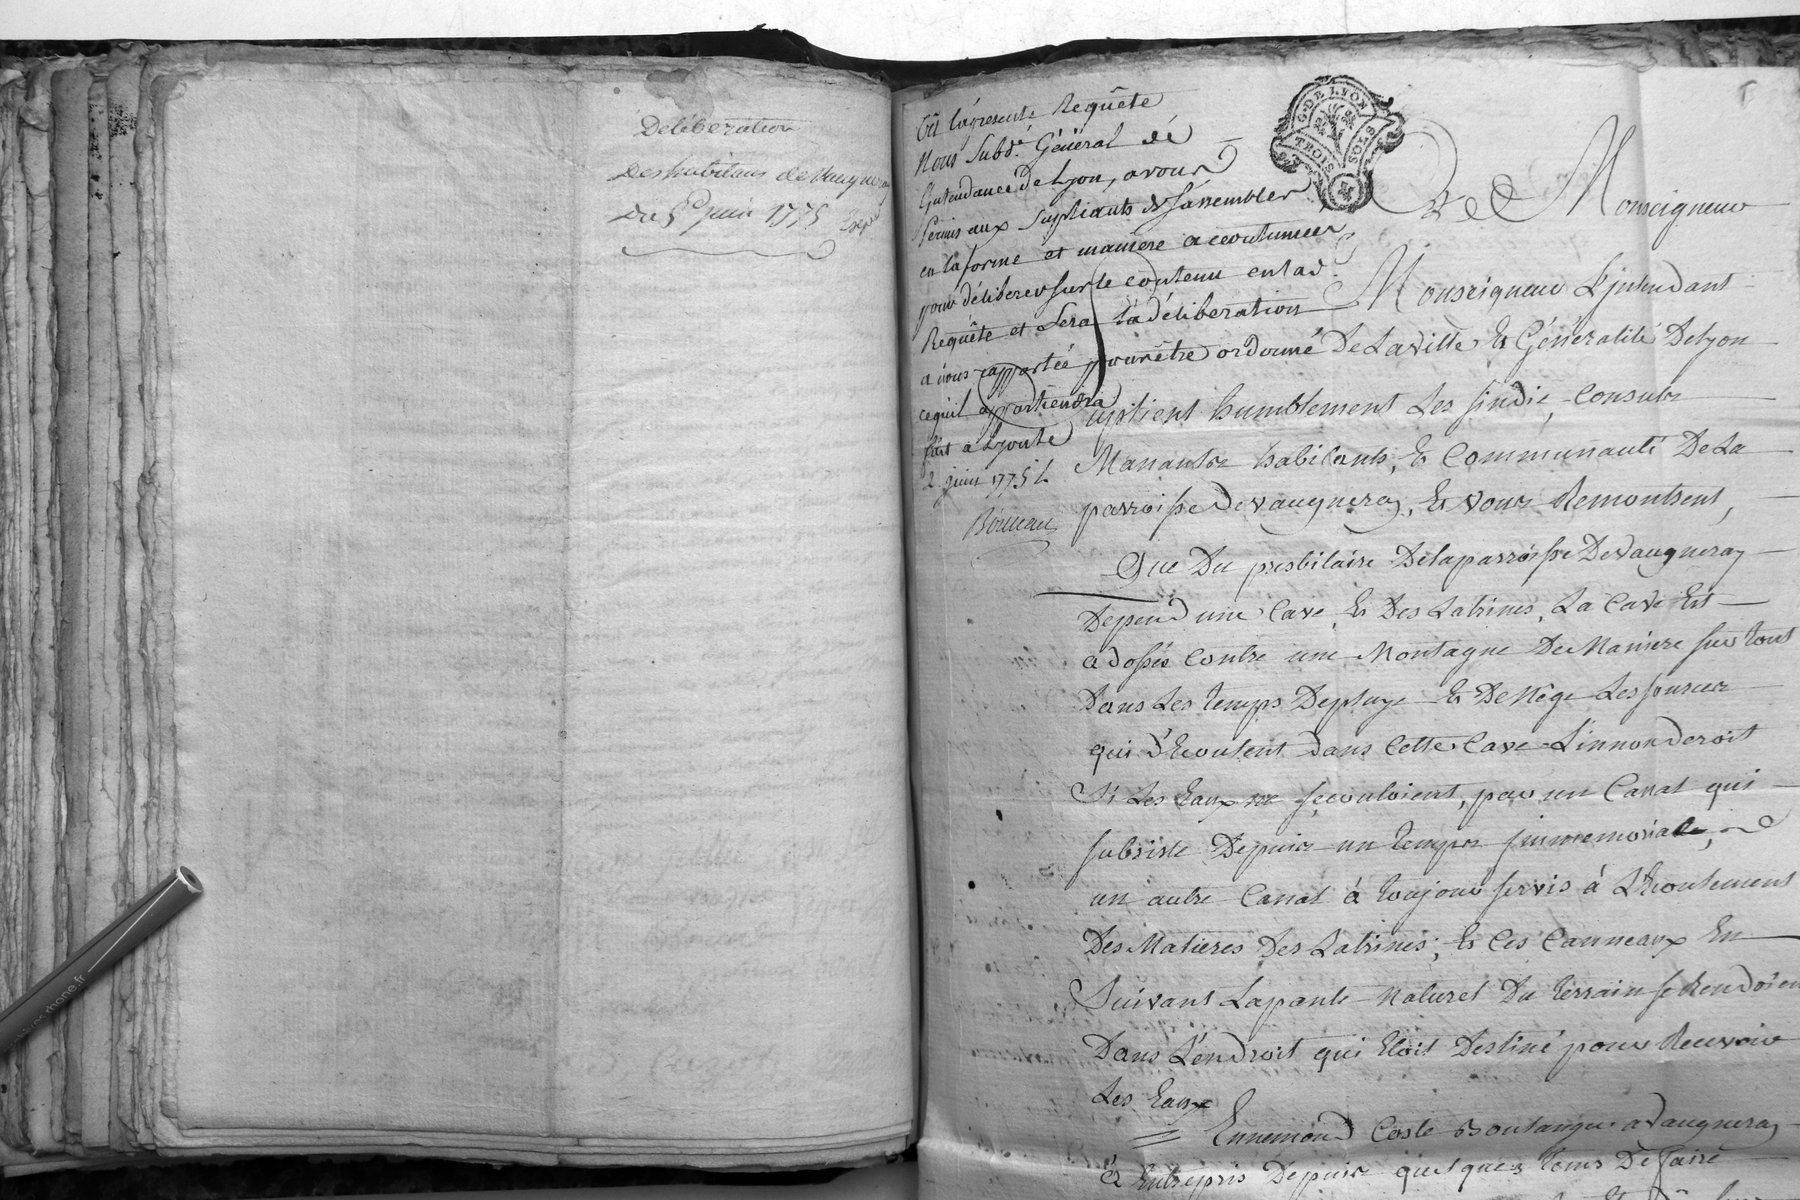 Deliberation
des habitans de Vaugneray
du 5e juin 1775
archives.rhone.fr
Vû la presente Requête
Nous Subd.é Général de
Intendance de Lyon, avons
Permis aux supliants de s'assembler
en la forme et maniere accoutumées
pour déliberer sur le contenu en lad.
Requête et Sera la déliberation
a nous rapportée pour être ordonné
ce qu'il appartiendra
fait a Lyon le
2 juin 1775
G. DE LYON
TROIS SOLS
A Monseigneur
Monseigneur L'jntendant
De La ville Et Généralité De Lyon
Suplient humblement Les sindic, Consuls
Manants habitants, Et Communauté De La
parroisse De vaugneray, Et vous Remontrent,
Que Du presbitaire De la parroisse De Vaugneray
Depend une Cave, Et Des Latrines, La Cave Est
adossée Contre une Montagne De Maniere sur tout
Dans Les temps De pluye Et De Nêge Les sources
qui s'Ecoulent dans Cette Cave L'innonderoit
Si Les Eaux ne s'ecouloient, par un Canal qui
subsiste Depuis un temps jmmemoriale,
un autre Canal à toujour servis à L'Ecoulement
Des Matieres Des Latrines; Et Ces Canneaux En
Suivant La pante Naturel Du terrain se Rendoien
Dans L'endroit qui Etoit Destiné pour Recevoir
Les Eaux
Ennemond Coste Boulanger a Vaugneray
à Entrepris Depuis quelques tems De faire